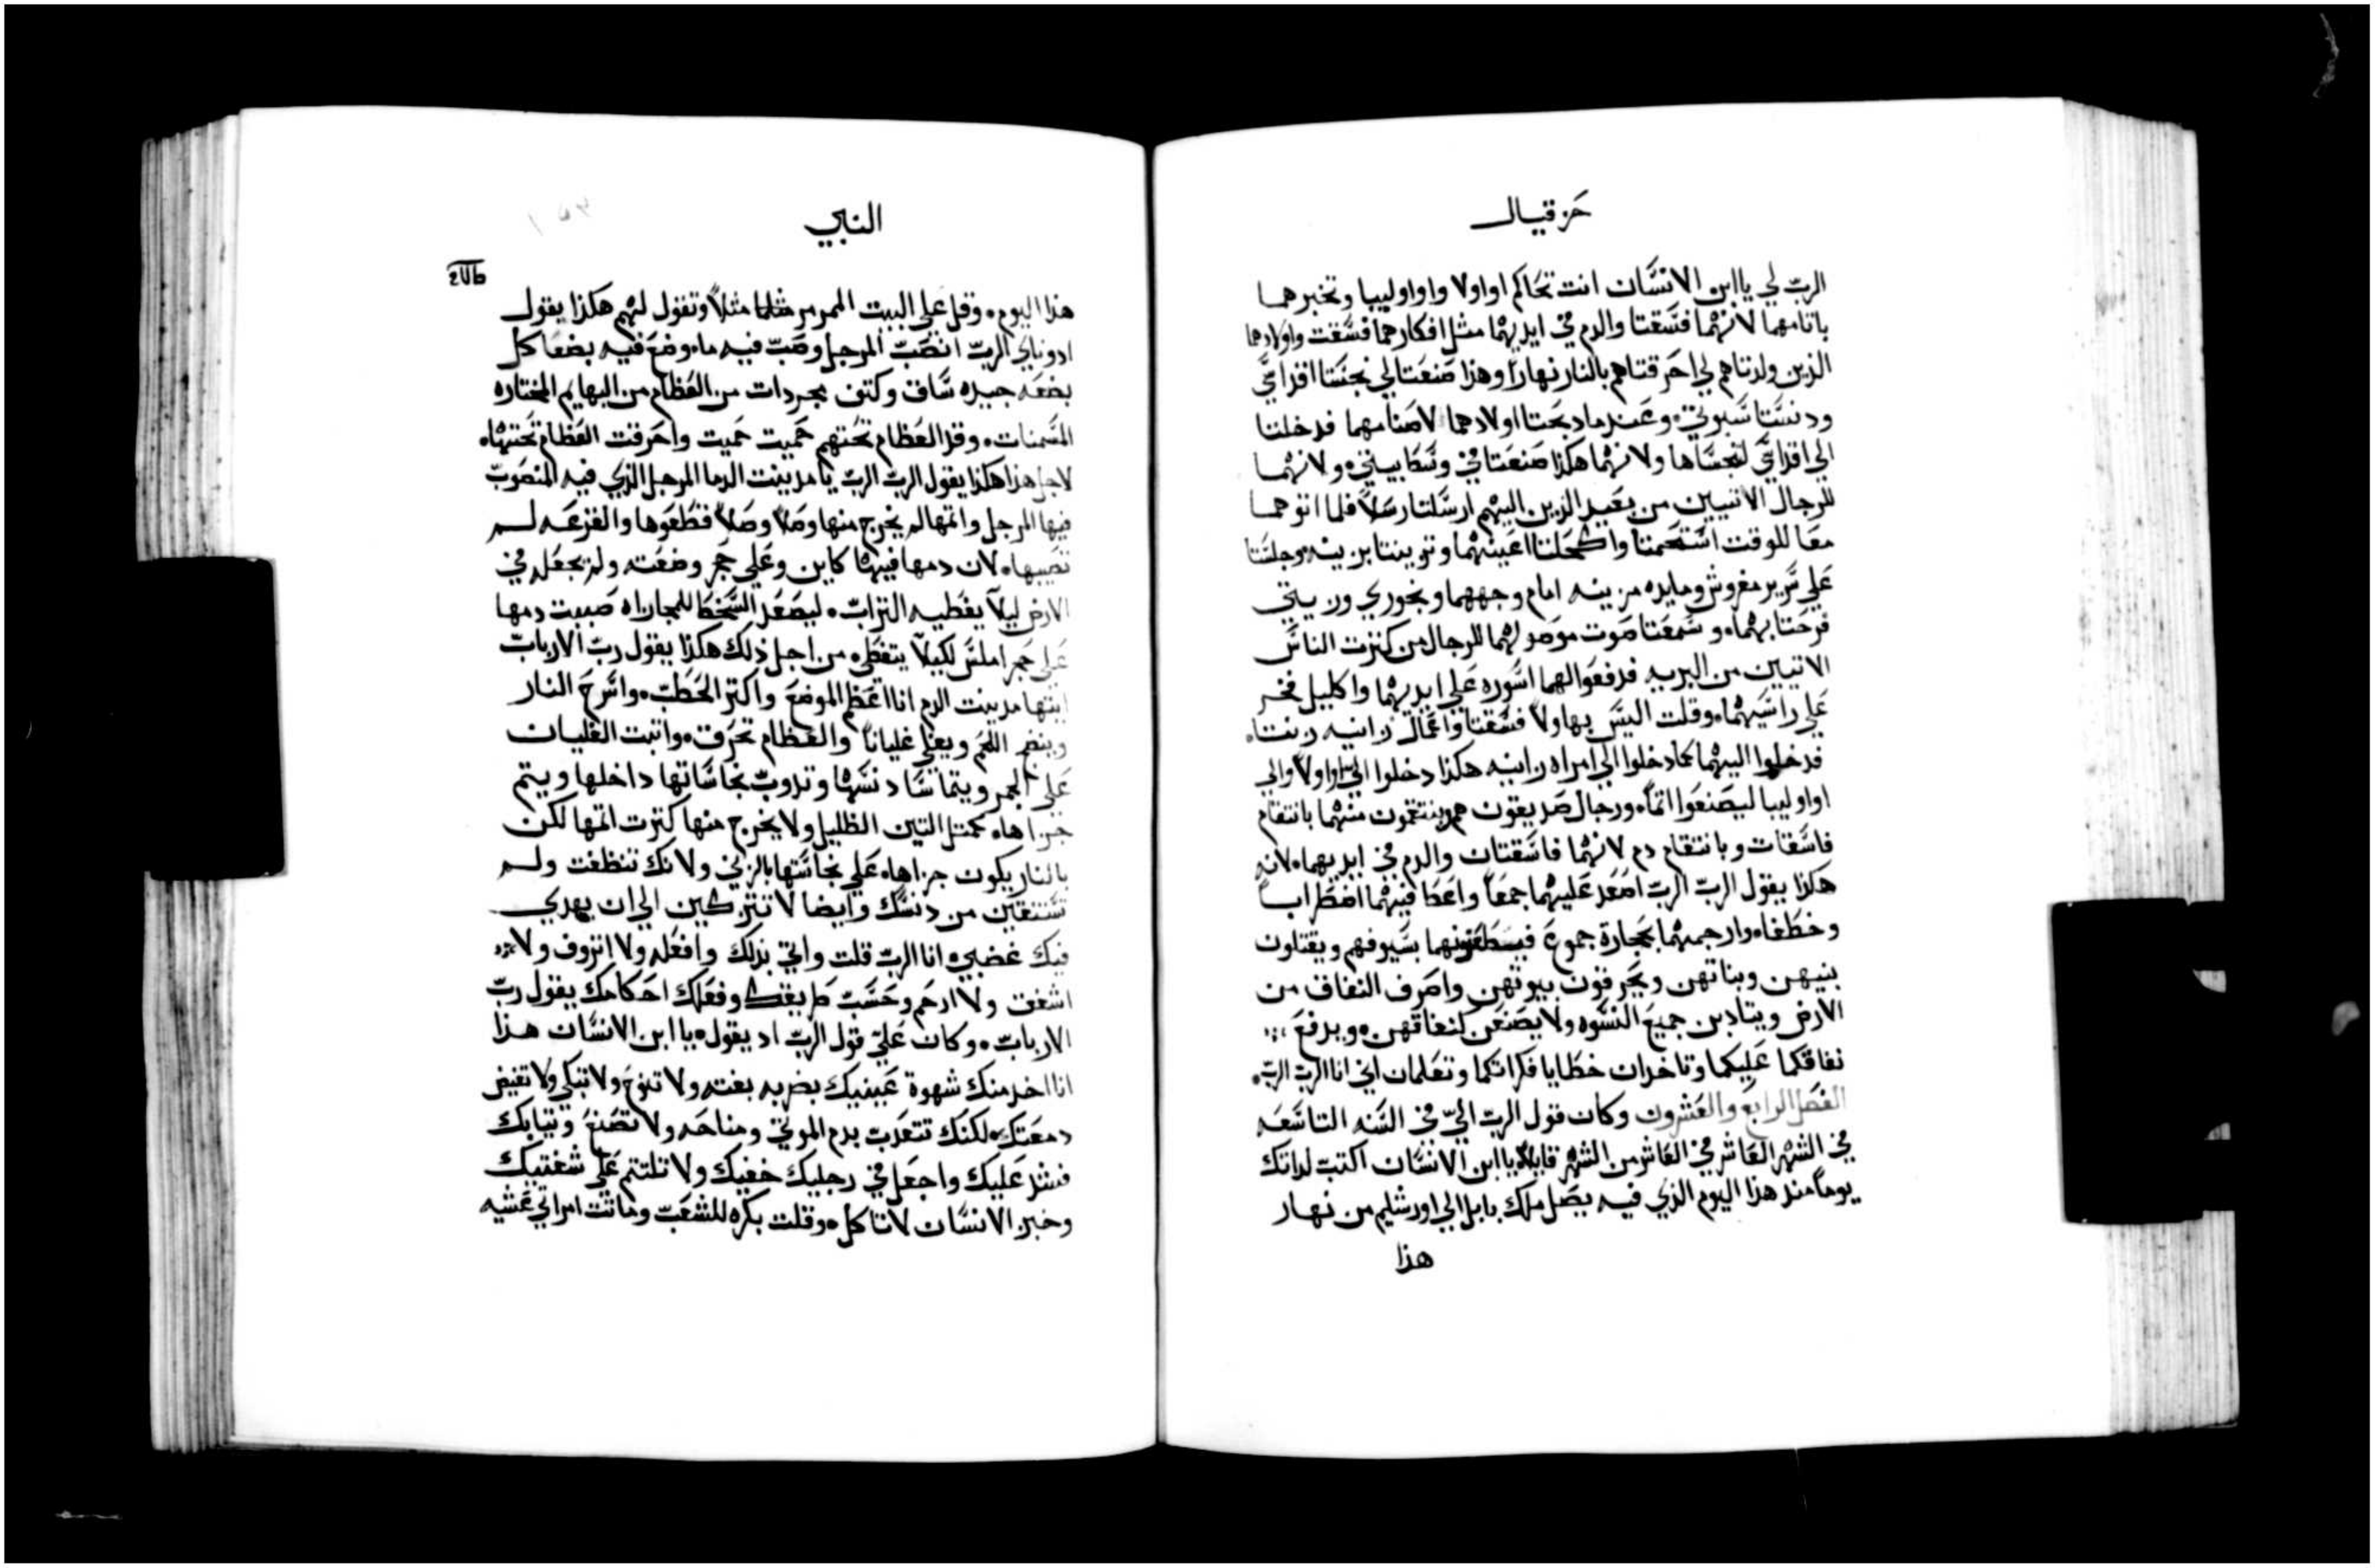 حزقيال
الرب لي يا ابن الانسان انت تحاكم اواولا واواوليبا وتخبرهما
باثامهما لانهما فسقتا والدم في ايديهما مثل افكارهما فسقت واولادهما
الذين ولدتاهم لي احرقتاهم بالنار نهارًا وهذا صنعتا لي نجستا اقداسي
ودنستا سبوتي وعندما دبحتا اولادهما لاصنامهما فدخلتا
الي اقداسي لنجساها ولانهما هكذا صنعتا في وسط بيتي ولانهما
للرجال الاتيين من بعيد الذين اليهم ارسلتا رسلاً فلما اتوهما
معا للوقت استحمتا واكحلتا اعينهما وتزينتا بزينه وجلستا
علي سرير مفروش ومايده مزينه امام وجههما وبخوري وزيتي
فرحتا بهما وسمعتا صوت موصولهما للرجال من كترت الناس
الاتيين من البريه فدفعوا لهما اسوره علي ايديهما واكليل فخر
علي راسيهما وقلت اليس بهاولا فسقتا واعمال زانيه زنتا
فدخلوا اليهما كما دخلوا الي امراه زانيه هكذا دخلوا الي اواولا والي
اواوليبا ليصنعوا اثمًا ورجال صديقون هم ينتقمون منهما بانتقام
فاسقات وبانتقام دم لانهما فاسقتان والدم في ايديهما لانه
هكذا يقول الرب الرب اصعد عليهما جمعًا واعط فيهما اضطرابًا
وخطفا وارجمهما بحجارة جموع بسيوفهم ويقتلون
بنيهن وبناتهن ويحرقون بيوتهن واصرف النفاق من
الارض ويتادبن جميع النسوه ولا يصنعن كنفاقهن ويدفع
نفاقكما عليكما وتاخدان خطايا فكراتكما وتعلمان اني انا الرب الرب
الفصل الرابع والعشرون وكان قول الرب الي في السنه التاسعه
في الشهر العاشر في العاشر من الشهر قايلاً يا ابن الانسان اكتب لداتك
يومًا مند هذا اليوم الذي فيه يصل ملك بابل الي اورشليم من نهار
هذا
النبي
هذا اليوم وقل علي البيت الممرمر مثلاً وتقول لهم هكذا يقول
ادوناي الرب انصب المرجل وصب فيه ماء وضع فيه بضعا كل
بضعه جيده ساق وكتف مجردات من العظام من البهايم المختاره
المسمنات وقد العظام تحتهم حميت حميت واحرقت العظام تحتها
لاجل هذا هكذا يقول الرب الرب يا مدينت الدما المرجل الذي فيه المنصوب
فيها المرجل واتمها لم يخرج منها وصلاً وصلاً فقطعوها والقرعه لم
تصيبها لان دمها فيها كاين وعلي حجر وضعته ولم تجعله في
الارض ليلاً يغطيه التراب ليصعد السخط للمجازاه صببت دمها
علي حجر املس لكيلا يتغطي من اجل ذلك هكذا يقول رب الارباب
ايتها مدينت الدم انا اعظم الموضع واكتر الحطب واسرج النار
وينضج اللحم ويغلي غليانًا والعظام تحرق واتبت الغليان
علي الجمر دنسها وتدوب نجاساتها داخلها ويتم
جزاها كمتل التين الظليل ولا يخرج منها كترت اتمها لكن
بالنار يكون جزاها علي نجاستها بالزني ولانك تنظفت ولم
تتنقين من دنسك وايضا لا تتركين الي ان يهدي
فيك غضبي انا الرب قلت واتي بدلك وافعله ولا اتروف ولا
اشفق ولا ارحم وحسب طريقك وفعلك احكامك يقول رب
الارباب وكان علي قول الرب اد يقول يا ابن الانسان هذا
انا اخد منك شهوة عينيك بضربه بغته ولا تنوح ولا تبكي ولا تفيض
دمعتك لكنك تتعدب بدم الموتي ومناحه ولا تصنع وتيابك
علیك واجعل في رجليك خفيك ولا تلتتم علي شفتيك
وخبز الانسان لا تاكل وقلت بكره للشعب وماتت امراتي عشيه